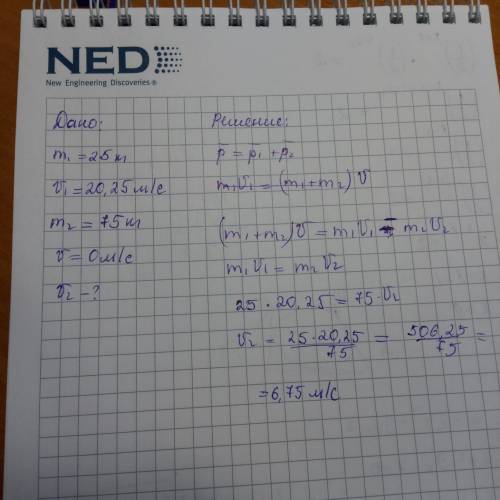 NED
New Engineering Discoveries®
Дано:
m₁ = 25 кг
v₁ = 20,25 м/с
m₂ = 75 кг
v = 0 м/с
v₂ - ?
Решение:
p = p₁ + p₂
m₁v₁ = (m₁ + m₂) v
(m₁ + m₂) v = m₁v₁ - m₂v₂
m₁v₁ = m₂v₂
25 · 20,25 = 75 · v₂
v₂ = 25 · 20,25 / 75 = 506,25 / 75 =
= 6,75 м/с